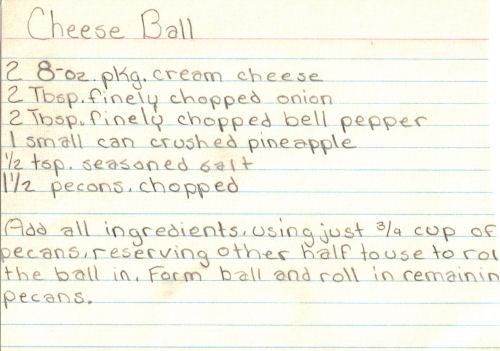 Cheese Ball
2 8-oz. pkg. cream cheese
2 Tbsp. finely chopped onion
2 Tbsp. finely chopped bell pepper
1 small can crushed pineapple
1/2 tsp. seasoned salt
1 1/2 pecans, chopped
Add all ingredients, using just 3/4 cup of
pecans, reserving other half to use to rol
the ball in. Form ball and roll in remainin
pecans.